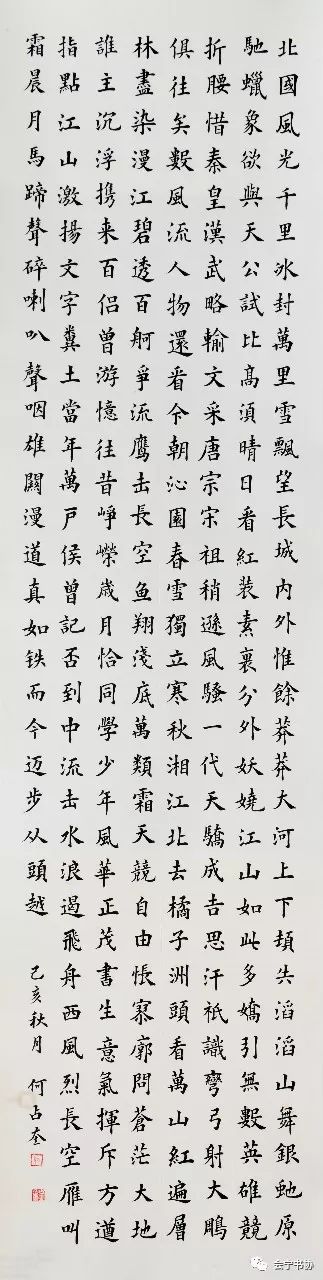 北國風光千里冰封萬里雪飄望長城内外惟餘莽莽大河上下頓失滔滔山舞銀虵原
馳蠟象欲與天公試比高湏晴日看紅装素裹分外妖嬈江山如此多嬌引無數英雄競
折腰惜秦皇漢武略輸文采唐宗宋祖稍遜風騷一代天驕成吉思汗衹識彎弓射大鵰
俱往矣數風流人物還看今朝沁園春雪獨立寒秋湘江北去橘子洲頭看萬山紅遍層
林盡染漫江碧透百舸爭流鹰击長空鱼翔淺底萬類霜天競自由悵寥廓問蒼茫大地
誰主沉浮携来百侣曾游憶往昔崢嶸歲月恰同學少年風華正茂書生意氣揮斥方遒
指點江山激揚文字糞土當年萬戶侯曾記否到中流击水浪遏飛舟西風烈長空雁叫
霜晨月馬蹄聲碎喇叭聲咽雄關漫道真如铁而今迈步从頭越 己亥秋月 何占奎
会宁书协